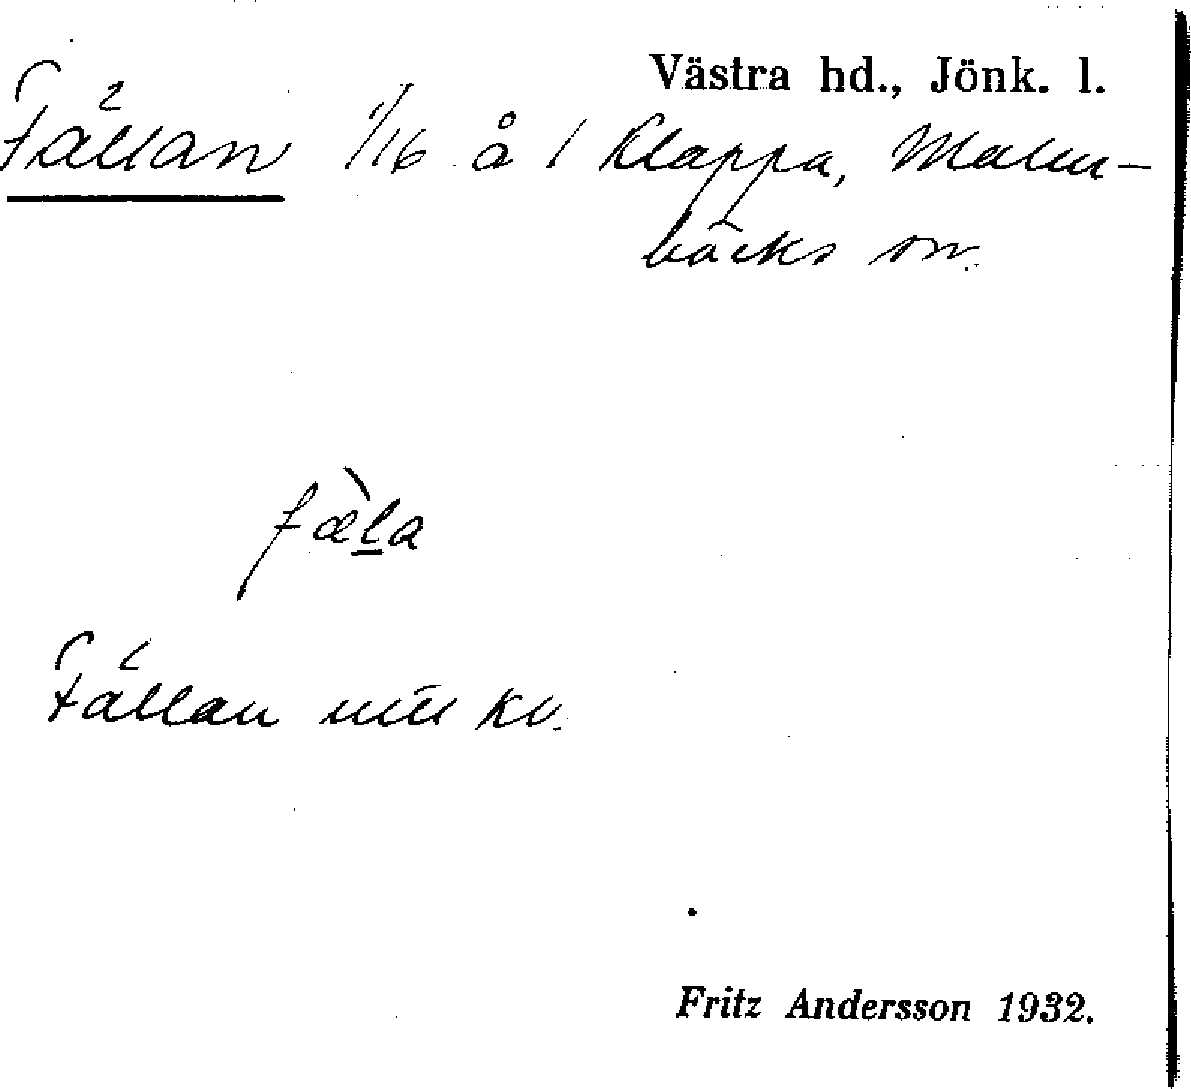 Västra hd., Jönk. l.
Fällan 1/16 å 1 Klappa, Malm-
bäcks sn.
fæ̀l̲a
Fällan
kv.
Fritz Andersson 1932.